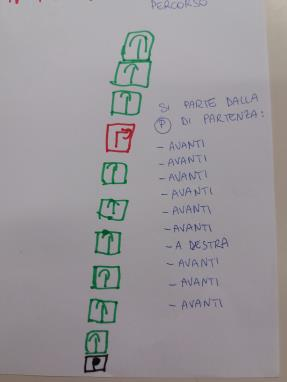 PERCORSO
SI PARTE DALLA
P DI PARTENZA:
- AVANTI
- AVANTI
- AVANTI
- AVANTI
- AVANTI
- AVANTI
- A DESTRA
- AVANTI
- AVANTI
- AVANTI
P